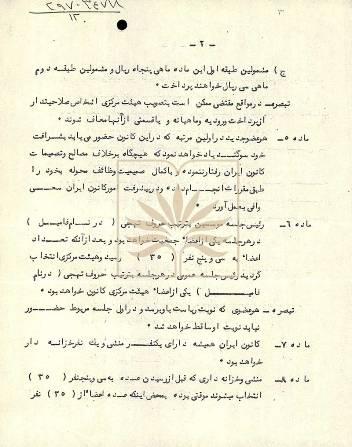 ۳۹۷۰۳۴۷۷۸
۱۳
۳
ـ ۲ ـ
ج) مشمولین طبقه اول این ماده ماهی پنجاه ریال و مشمولین طبقه دوم
ماهی سی ریال خواهند پرداخت
تبصره ـ در مواقع مقتضی ممکن است بتصویب هیئت مرکزی اشخاص صلاحیتدار
از پرداخت ورودیه و ماهیانه و یا قسمتی از آنها معاف شوند ۰
ماده ۵ـ هر عضو جدید در اولین مرتبه که در این کانون حضور می‌یابد بشرافت
خود سوگند یاد خواهد نمود که هیچگاه برخلاف مصالح و تصمیمات
کانون ایران رفتار ننموده و با کمال صمیمیت وظائف محوله بخود را
طبق مقررات انجام داده و در پیشرفت امور کانون ایران سعی
وافی بعمل آورد ۰
ماده ۶ـ رئیس جلسه مؤسسین بترتیب حروف تهجی ( در نام فامیل )
در هر جلسه یکی از اعضاء جمعیت خواهد بود و بعد از آنکه تعداد
اعضاء به سی و پنج نفر ( ۳۵ ) رسید و هیئت مرکزی انتخاب
گردید رئیس جلسه عمومی در هر جلسه بترتیب حروف تهجی ( در نام
فامیل ) یکی از اعضاء هیئت مرکزی کانون خواهد بود ۰
تبصره ـ هر عضوی که نوبت ریاست باو برسد و در اول جلسه مربوط حضور
نیابد نوبت او ساقط خواهد شد ۰
ماده ۷ـ کانون ایران همیشه دارای یکنفر منشی و یک نفر خزانه دار
خواهد بود ۰
ماده ۸ـ منشی و خزانه داری که قبل از رسیدن عده به سی و پنجنفر ( ۳۵ )
انتخاب میشوند موقتی بوده بمحض اینکه عده اعضاء از ( ۳۵ ) نفر